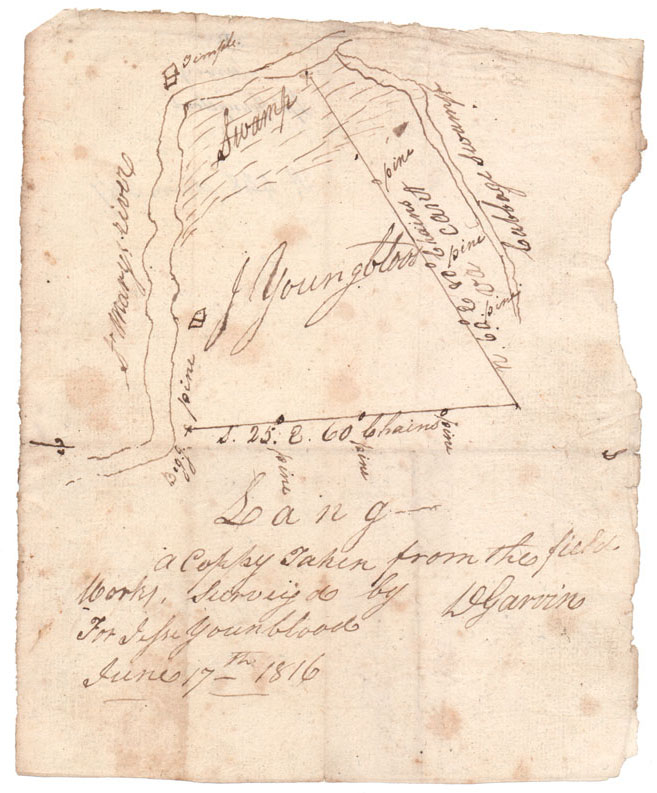 Temple
Swamp
St Marys river
Cabbage Swamp
J Youngblood
pine
pine
pine
pine
S. 25. E. 60 Chains
pine
pine
pine
Lang
a Coppy Taken from the field
Works, Surveyd by DGarvin
For Jesse Younblood
June 17th 1816